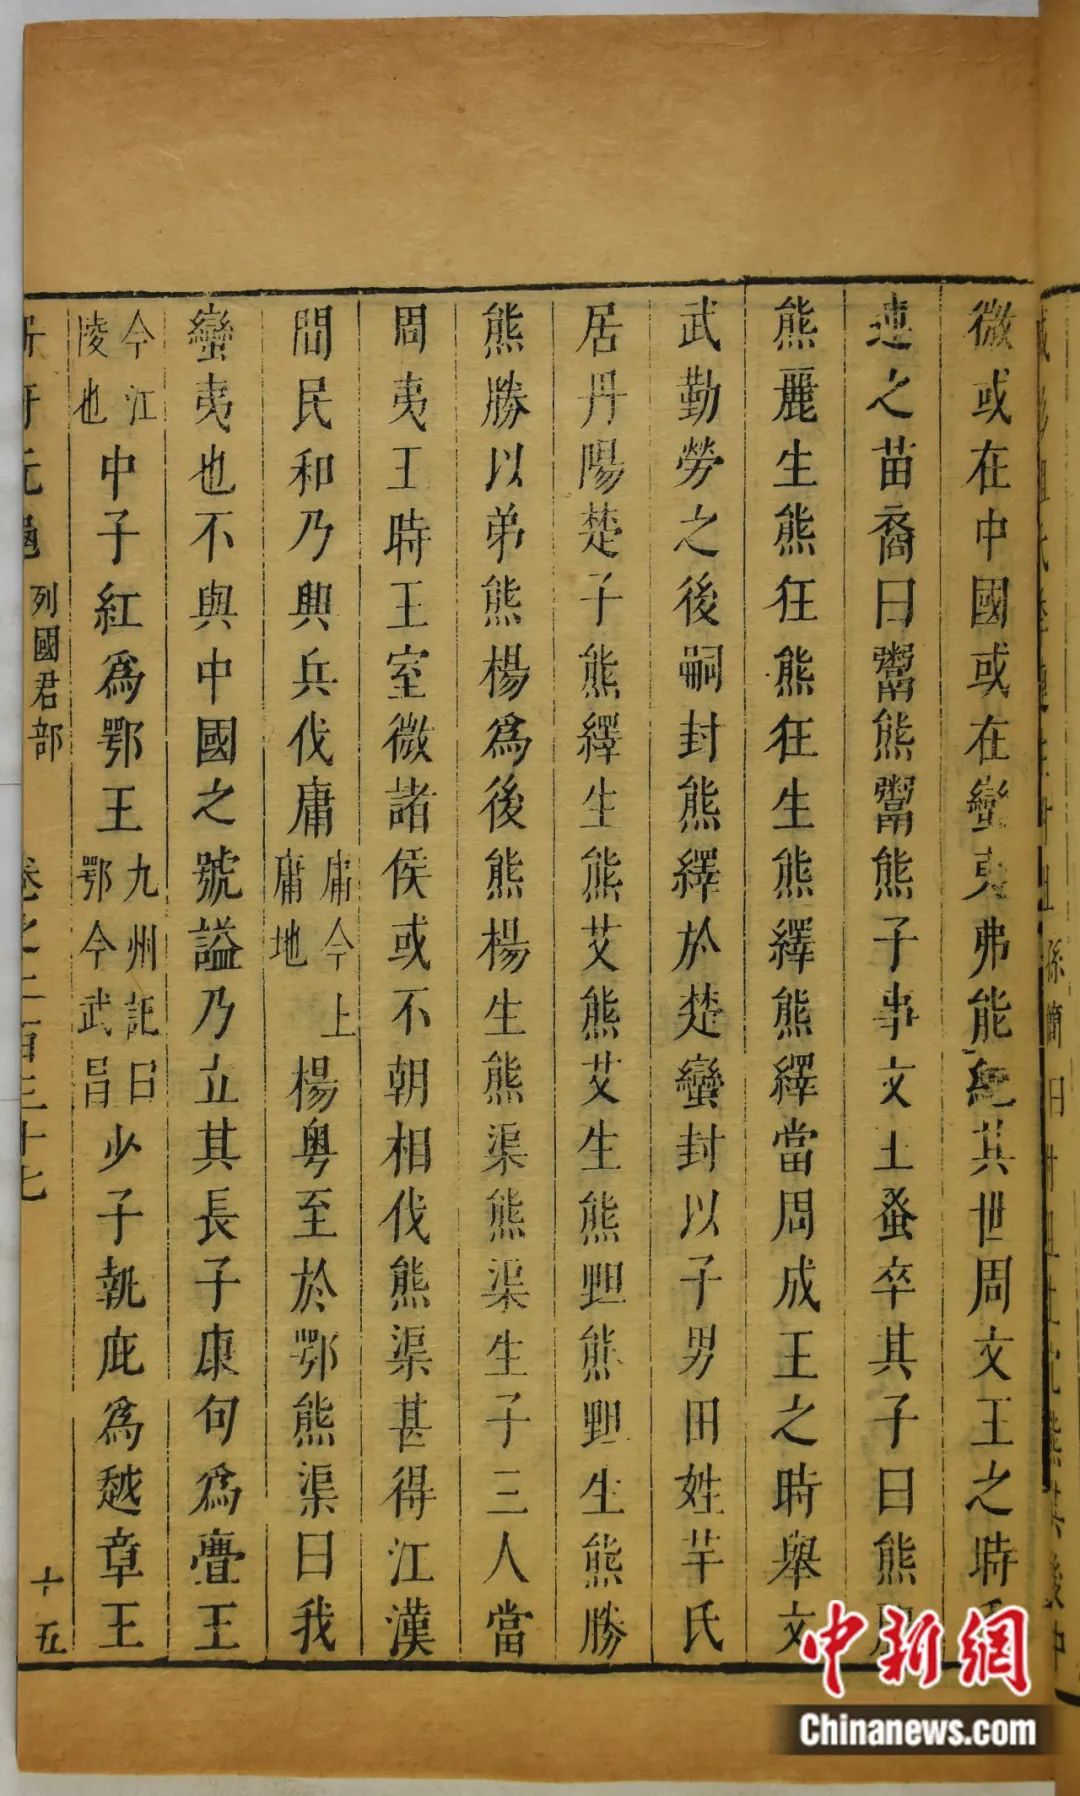 微或在中國或在蠻夷弗能紀其世周文王之時季
連之苗裔曰鬻熊鬻熊子事文王蚤卒其子曰熊麗
熊麗生熊狂熊狂生熊繹熊繹當周成王之時舉文
武勤勞之後嗣封熊繹於楚蠻封以子男田姓芊氏
居丹陽楚子熊繹生熊艾熊艾生熊䵣熊䵣生熊勝
熊勝以弟熊楊爲後熊楊生熊渠熊渠生子三人當
周夷王時王室微諸侯或不朝相伐熊渠甚得江漢
間民和乃興兵伐庸庸今上庸地楊粵至於鄂熊渠曰我
蠻夷也不與中國之號謚乃立其長子康句爲亶王
今江陵也中子紅爲鄂王九州記曰鄂今武昌少子執疵爲越章王
列國君部
卷之二百三十七
十五
孫簡曰
中新網
Chinanews.com